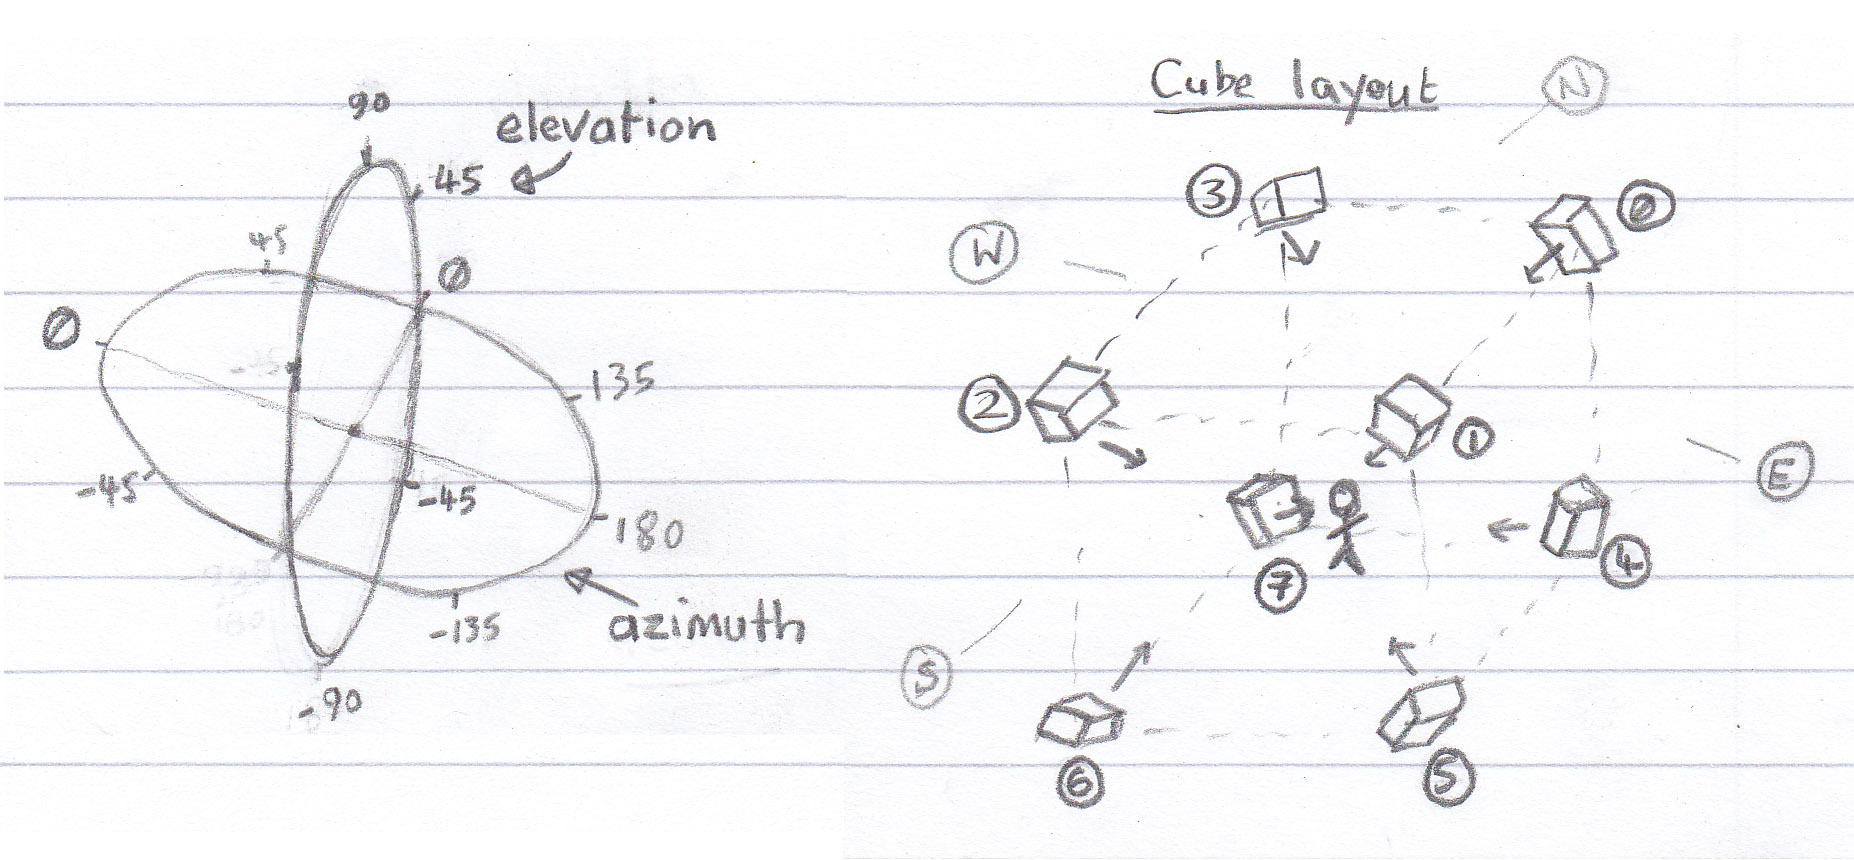 90
elevation
45
45
0
0
-135
-45
-45
-180
-135
azimuth
-90
Cube layout
N
3
0
W
2
1
E
7
4
S
6
5